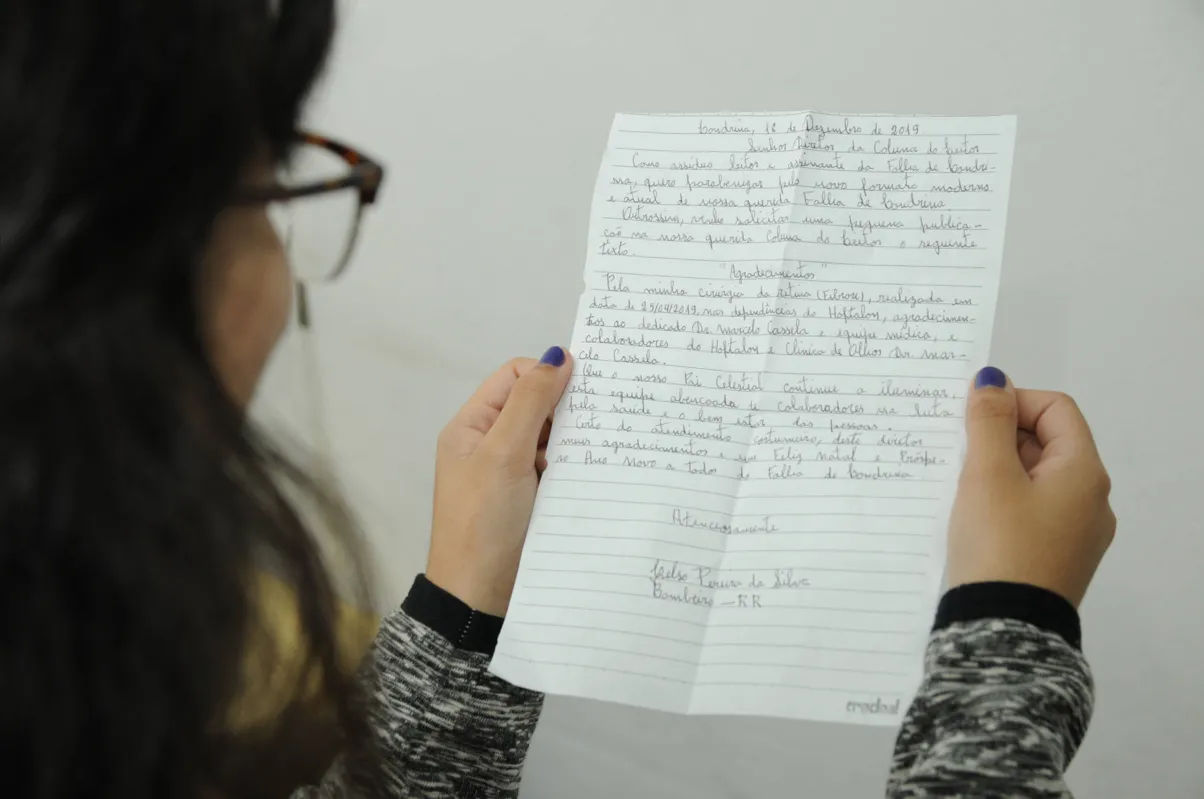 Londrina, 18 de Dezembro de 2019
Senhor Diretor da Coluna do Leitor
Como assíduo leitor e assinante da Folha de Londri-
na, quero parabenizar pelo novo formato moderno
e atual de nossa querida Folha de Londrina
Outrossim, venho solicitar uma pequena publica-
ção na nossa querida Coluna do Leitor o seguinte
texto.
"Agradecimentos"
Pela minha cirurgia da retina (Fibrose), realizada em
data de 25/04/2019, nas dependências do Hoftalon, agradecimen-
tos ao dedicado Dr. Marcelo Cassela e equipe médica, e
colaboradores do Hoftalon e Clínica de Olhos Dr. Mar-
celo Cassela.
Que o nosso Pai Celestial continue a iluminar,
esta equipe abençoada e colaboradores na luta
pela saúde e o bem estar, das pessoas.
Certo do atendimento costumeiro, deste diretor
meus agradecimentos e um Feliz Natal e Próspe-
ro Ano Novo a todos da Folha de Londrina
Atenciosamente
Pereira da Silva
Bombeiro - RR